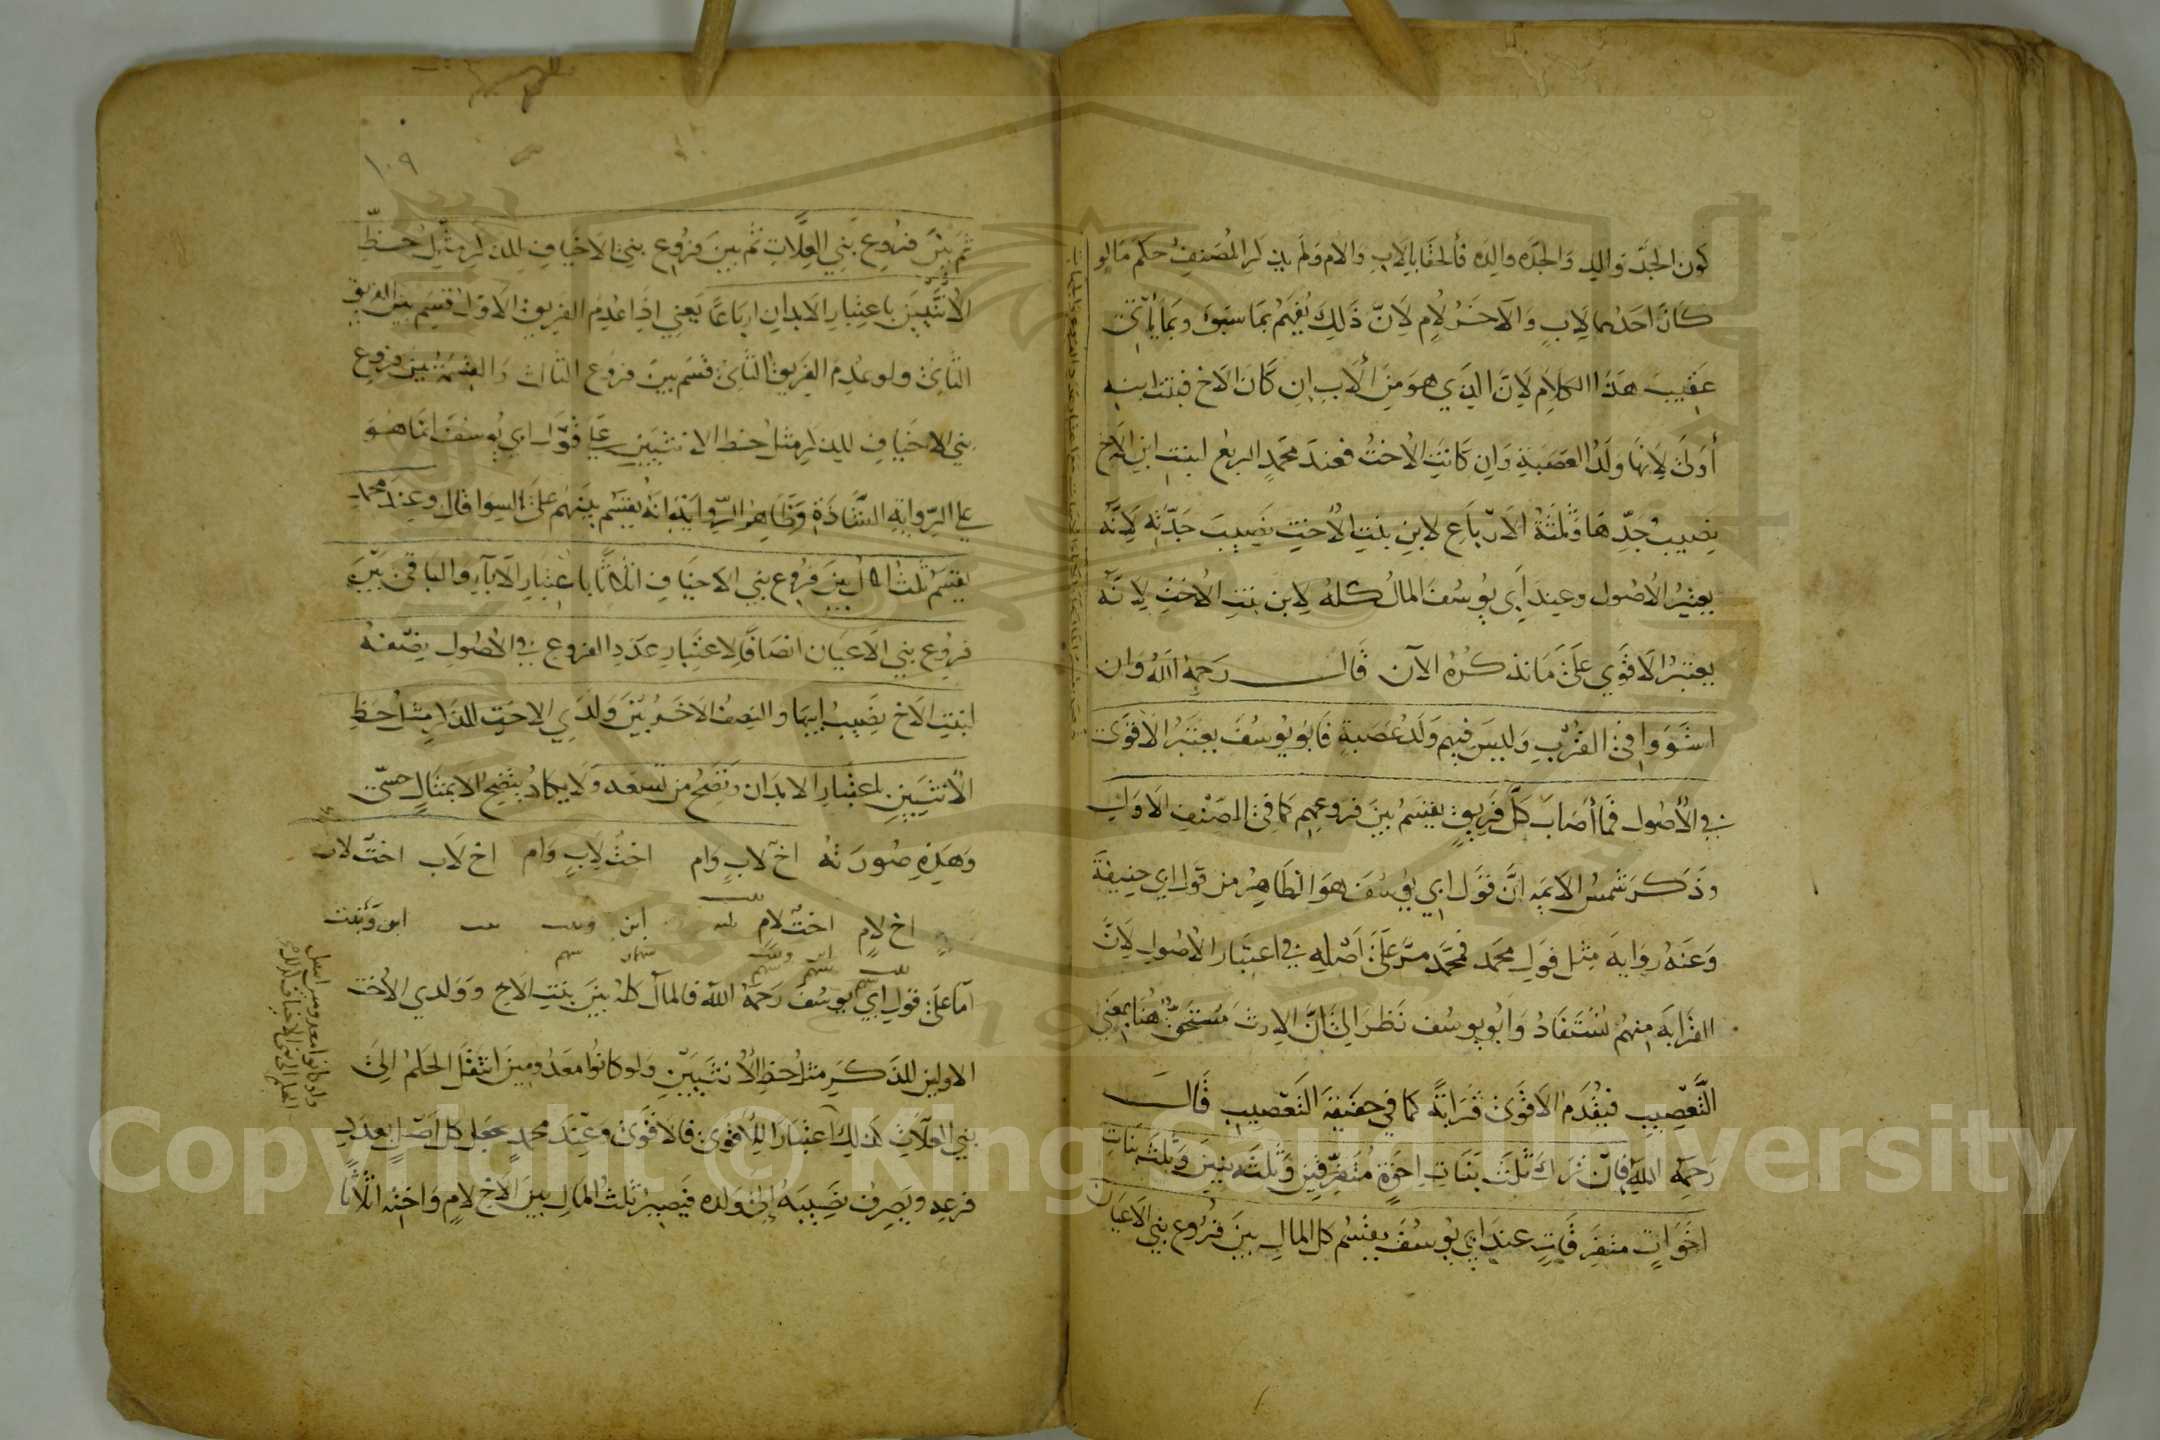 كون الجد والد والجدة والده فألحقا بالاب والام ولم يذكر المصنف حكم ما لو
كان احدهما لاب والآخر لام لان ذلك يفهم بما سبق وبما يأتي
عقيب هذا الكلام لان الذي هو من الأب ان كان الاخ فبنت ابنه
أولى لانها ولد العصبة وان كانت الاخت فعند محمد الربع لبنت ابن الاخ
نصيب جدها وثلثة الارباع لابن بنت الاخت نصيب جدته لانه
يعتبر الاصول وعند أبي يوسف المال كله لابن بنت الاخت لانه
يعتبر الاقوى على ما نذكره الآن قال رحمه الله وان
استووا في القرب وليس فيهم ولد عصبة فابو يوسف يعتبر الاقوى
في الاصول فما أصاب كل فريق يقسم بين فروعهم كما في الصنف الاول
وذكر شمس الائمه ان قول ابي يوسف هو الظاهر من قول ابي حنيفة
وعنه رواية مثل قول محمد فمحمد مر على اصله في اعتبار الاصول لان
القرابة منهم تستفاد وابو يوسف نظر الى ان الارث مستحق هنا بمعنى
التعصيب فيقدم الاقوى قرابة كما في حقيقة التعصيب قال
رحمه الله فان ترك ثلث بنات اخوة متفرقين وثلثة بنين وثلثة بنات
اخوات متفرقات عند ابي يوسف يقسم كل المال بين فروع بني الاعيان
١٠٩
ثم بين فروع بني العلات ثم بين فروع بني الاخياف للذكر مثل حظ
الأنثيين باعتبار الابدان ارباعا يعني اذا عدم الفريق الاول قسم بين الفريق
الثاني ولو عدم الفريق الثاني قسم بين فروع الثالث والقسمة بين فروع
بني الاخياف للذكر مثل حظ الانثيين على قول ابي يوسف انما هو
على الرواية الشاذة وظاهر الرواية انه يقسم بينهم على السوا قال وعند محمد
يقسم ثلث المال بين فروع بني الاخياف اثلاثا باعتبار الآباء والباقي بين
فروع بني الاعيان انصافا لاعتبار عدد الفروع في الاصول نصفه
لبنت الاخ نصيب ابيها والنصف الاخر بين ولدي الاخت للذكر مثل حظ
الانثيين باعتبار الابدان وتصح من تسعة ولا يكاد يتضح الا بمثال حسي
وهذه صورته اخ لاب وام اخت لاب وام اخ لاب اخت لاب
اخ لام اخت لام بنت ابن وبنت بنت ابن وبنت
اما على قول ابي يوسف رحمه الله فالمال كله بين بنت الاخ وولدي الاخت
الاولين للذكر مثل حظ الانثيين ولو كانوا معدومين انتقل الحكم الى
بني العلات كذلك اعتبارا للاقوى فالاقوى وعند محمد يجعل كل اصل بعدد
فرعه ويصرف نصيبه إلى ولده فيصير ثلث المال بين الاخ لام واخته اثلاثا
ولو كانوا معدومين انتقل
الحكم الى بني الاخياف كذلك